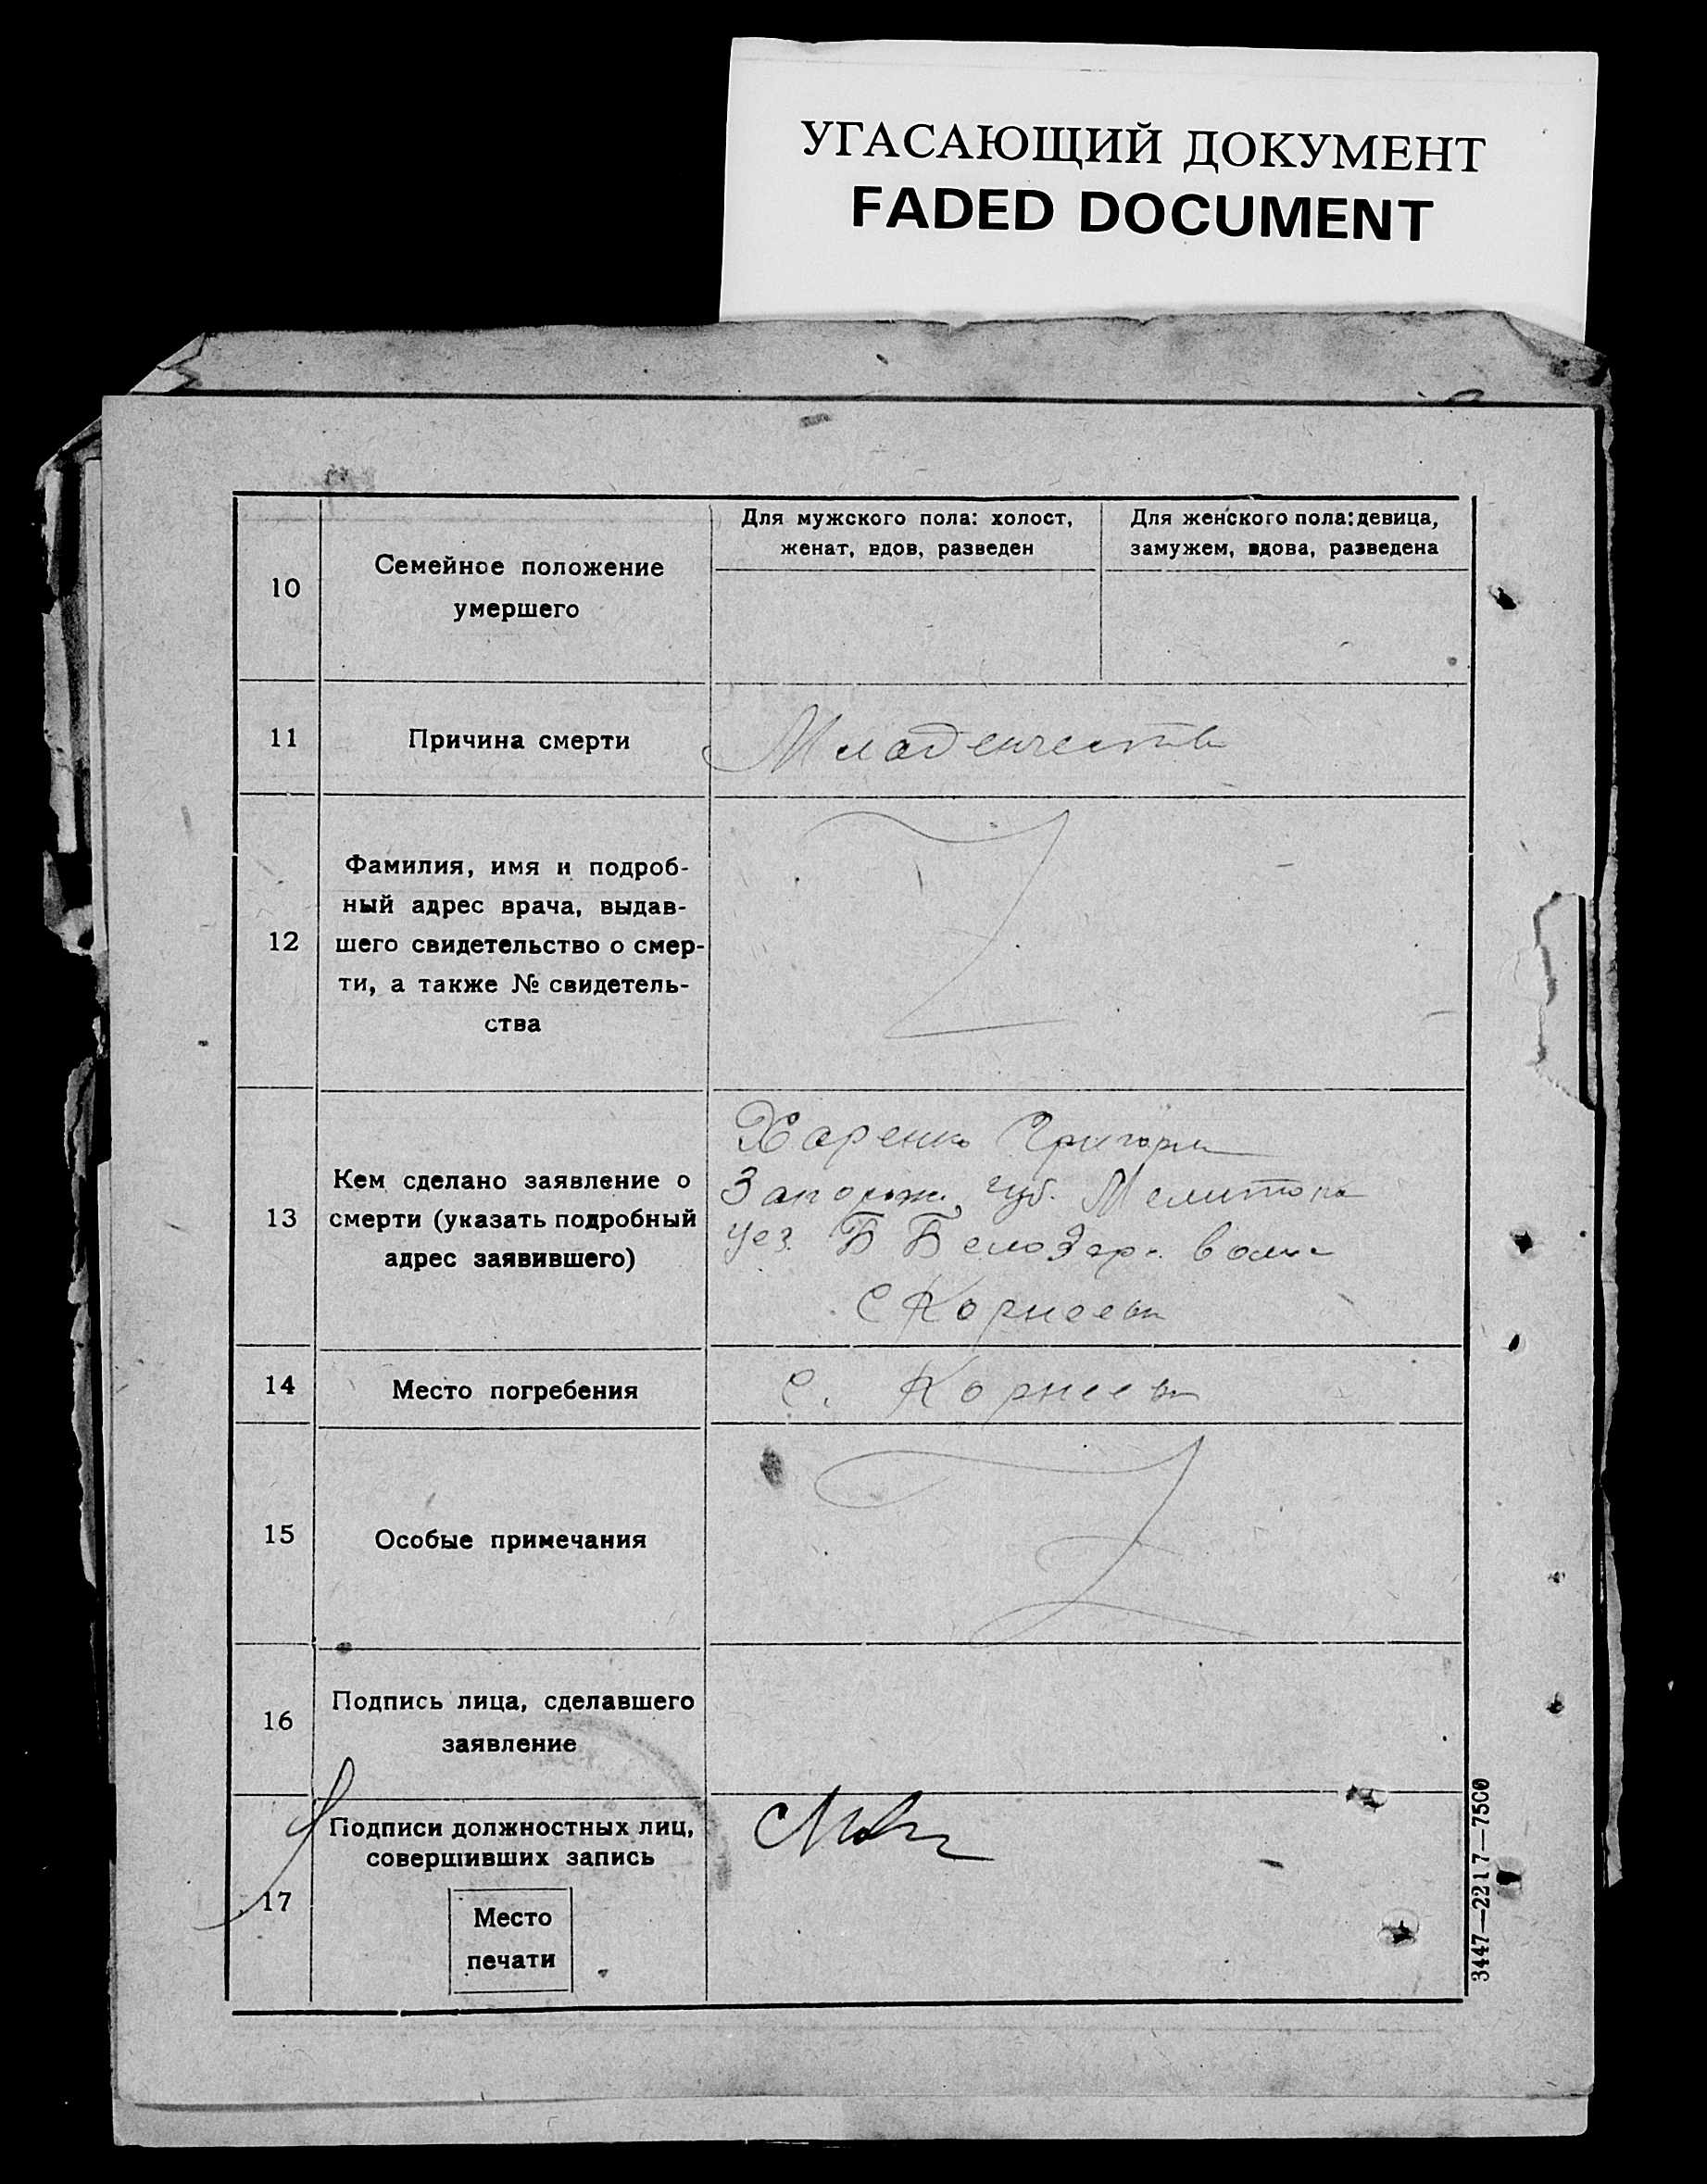 УГАСАЮЩИЙ ДОКУМЕНТ
FADED DOCUMENT
10
Семейное положение
умершего
Для мужского пола: холост,
женат, вдов, разведен
Для женского пола: девица,
замужем, вдова, разведена
11
Причина смерти
Младенчество
12
Фамилия, имя и подроб-
ный адрес врача, выдав-
шего свидетельство о смер-
ти, а также № свидетель-
ства
13
Кем сделано заявление о
смерти (указать подробный
адрес заявившего)
Харенко Григори
Запорож. губ. Мелитопо
уез. Б Белозер. воло
С Корнеевк
14
Место погребения
С. Корнеевк
15
Особые примечания
16
Подпись лица, сделавшего
заявление
17
Подписи должностных лиц,
совершивших запись
Место
печати
3447—2217—7500